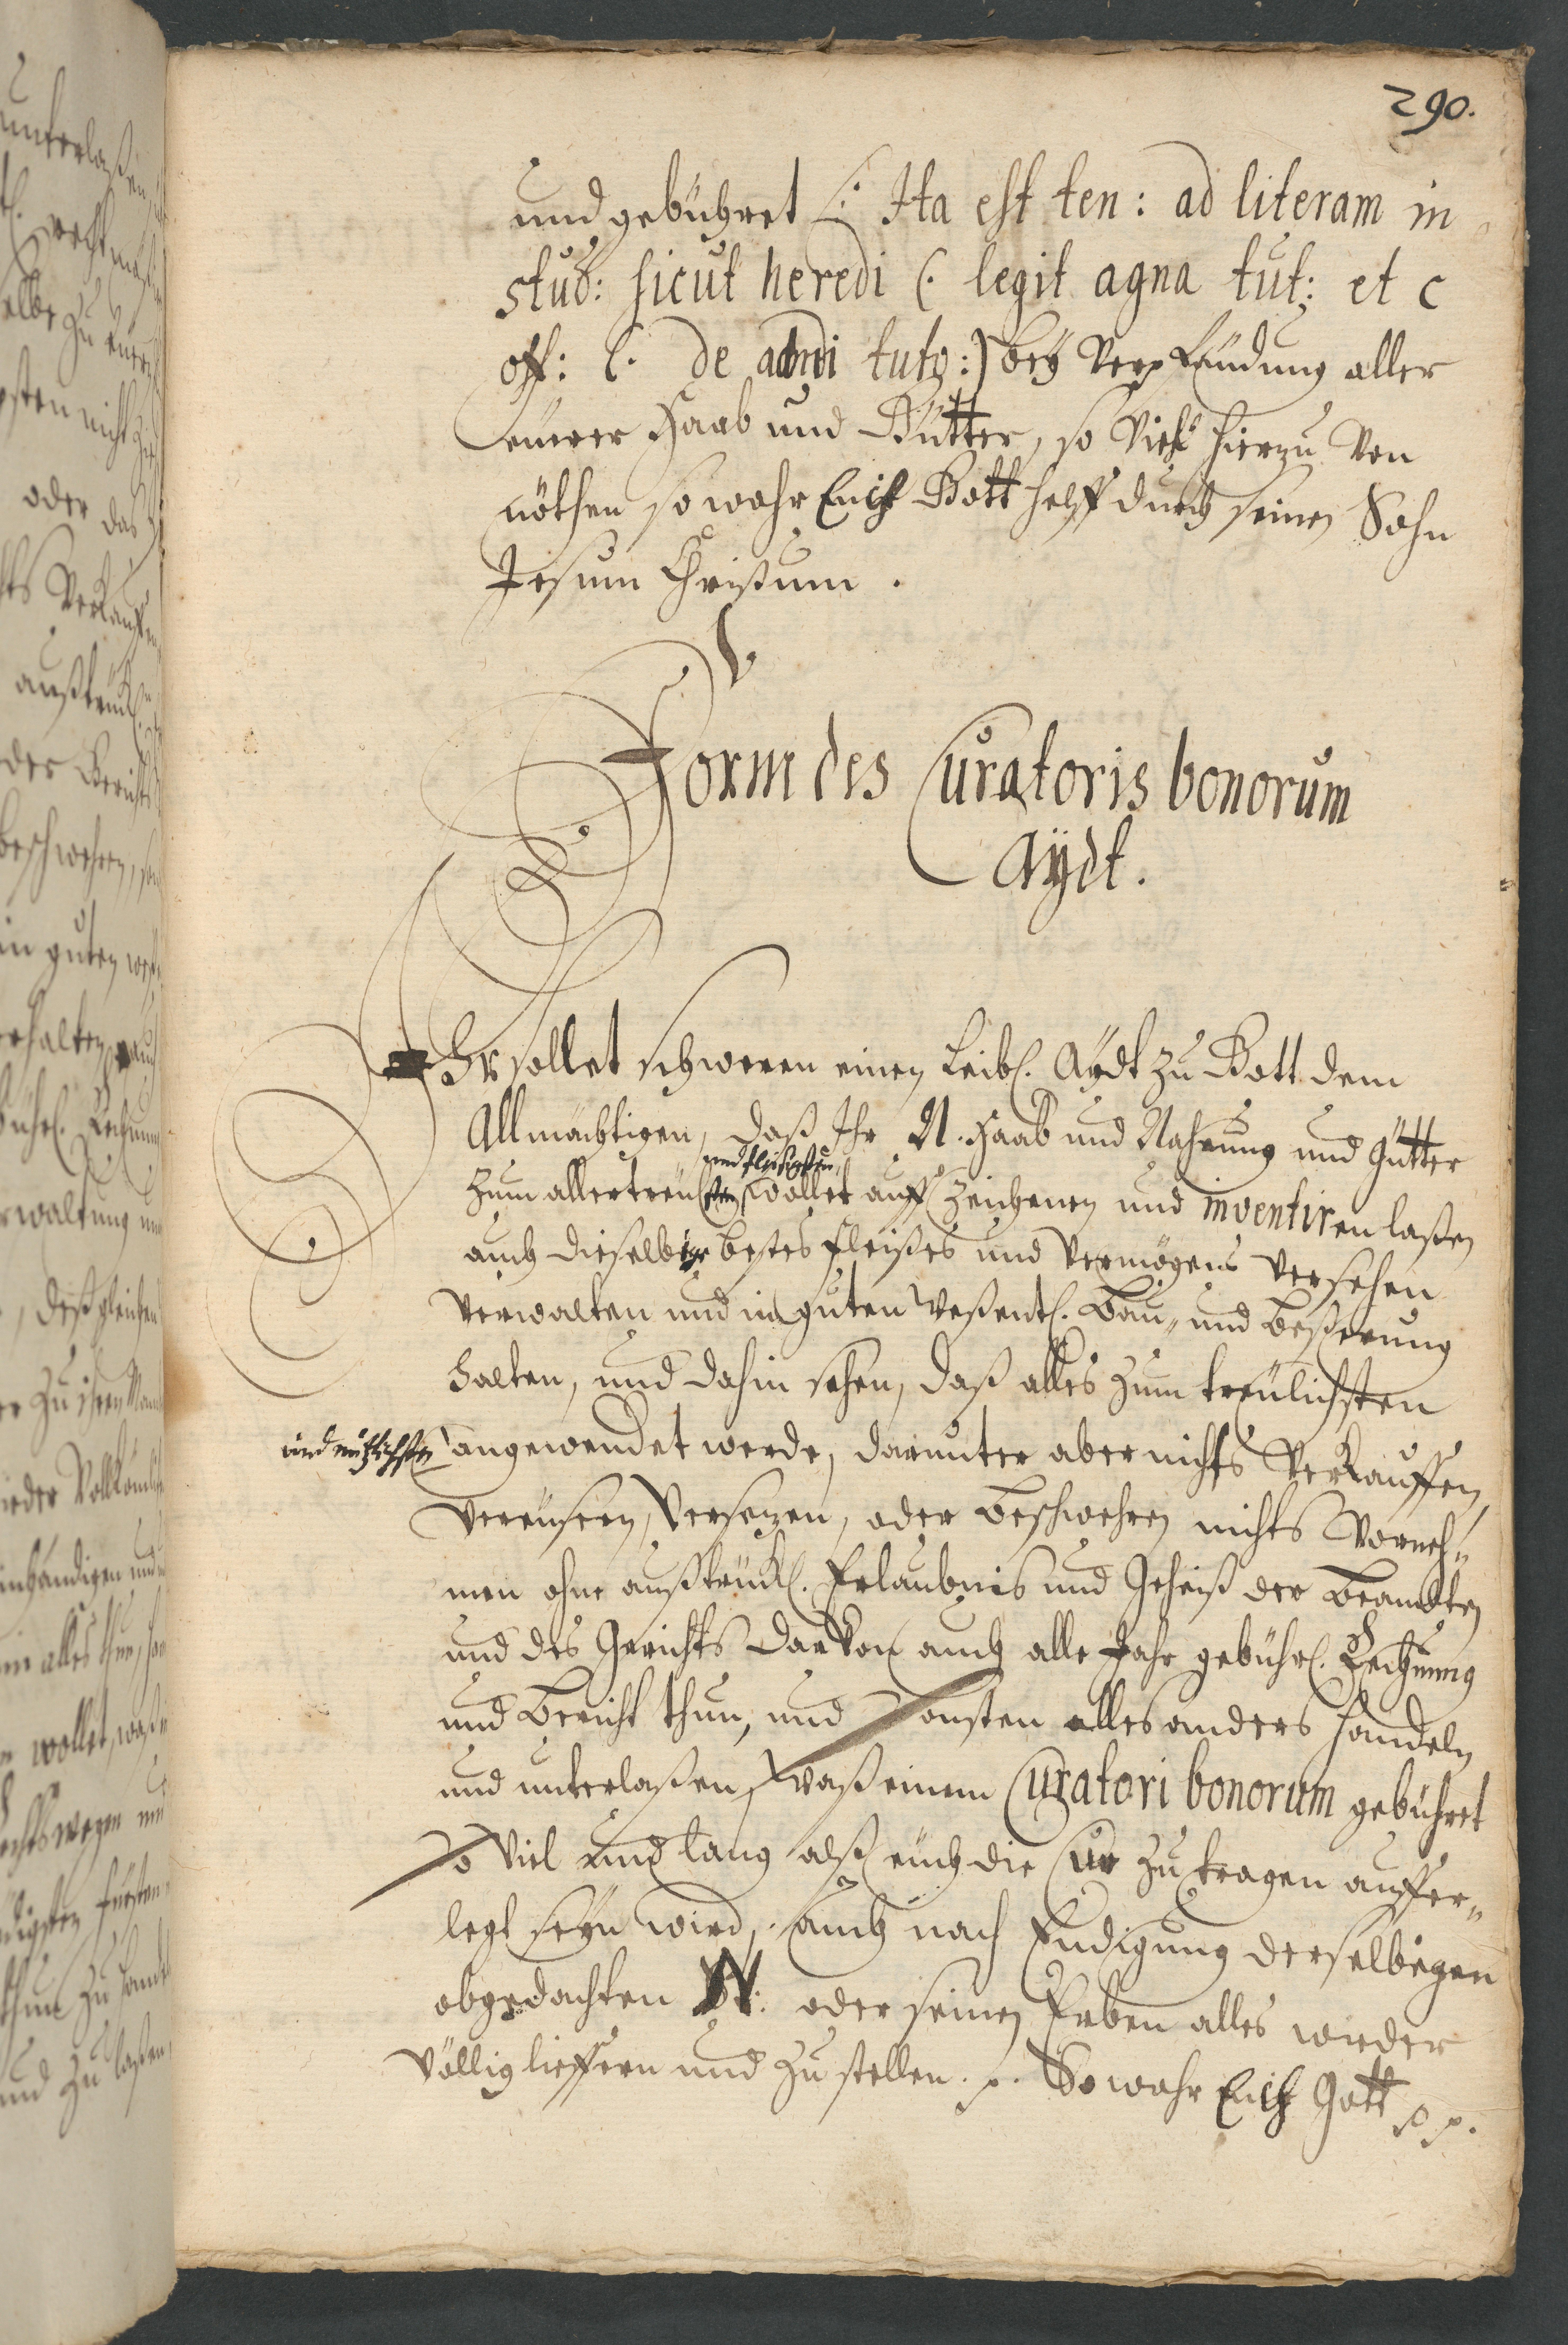 290.
und gebühret /: Ita est ten: ad literam in
stud: sicut heredi (. legit agna tut: et c
off: l. de admi tutr :) bey Verpfändung aller
eüerer Haab und Gütter, so Viehl hierzu Von
nöthen so wahr Euch Gott helff durch seinen Sohn
Jesum Christum.
V.
Form des Curatoris bonorum
Aÿdt.
Ihr sollet schweren einen Leibl. Aÿdt zu Gott dem
Allmächtigen, daß Ihr N. Haab und Nahrung und Gütter
und fleißigsten
zum allertreülichsten wollet auff Zeichenen und inventiren laßen
auch dieselbige bestes fleißes und Vermögens Versehen
Verwalten und in guten Weßentl. Bau- und Beßerung
halten, und dahin sehen, daß alles zum treülichsten
und nützlichsten angewendet werde, darunter aber nichts Verkauffen,
Vereüsern, Versezen, oder beschwehren nichts Vorneh-
men ohne außtrückl. Erlaubnis und Geheiß der Beambten
und des Gerichts darVon auch alle Jahr gebührl. Rechnung
und Bericht thun, und Sonsten alles anders handeln
und unterlaßen, waß einem Curatori bonorum gebühret
So Viel und lang alß eüch die Cur zu tragen auffer-
legt seÿn wird, auch nach Endigung derselbigen
obgedachten N: oder seinen Erben alles wieder
Völlig lieffern und zu stellen. p. So wahr Euch Gott p p.
unterlaßen
elbe zu
nicht
oder das
Verkauffen
der Gerichts
beschwehren,
in guten
erhalten, auch
Rechnung
rwaltung und
, deßgleichen
wollet, waß
und zu laßen